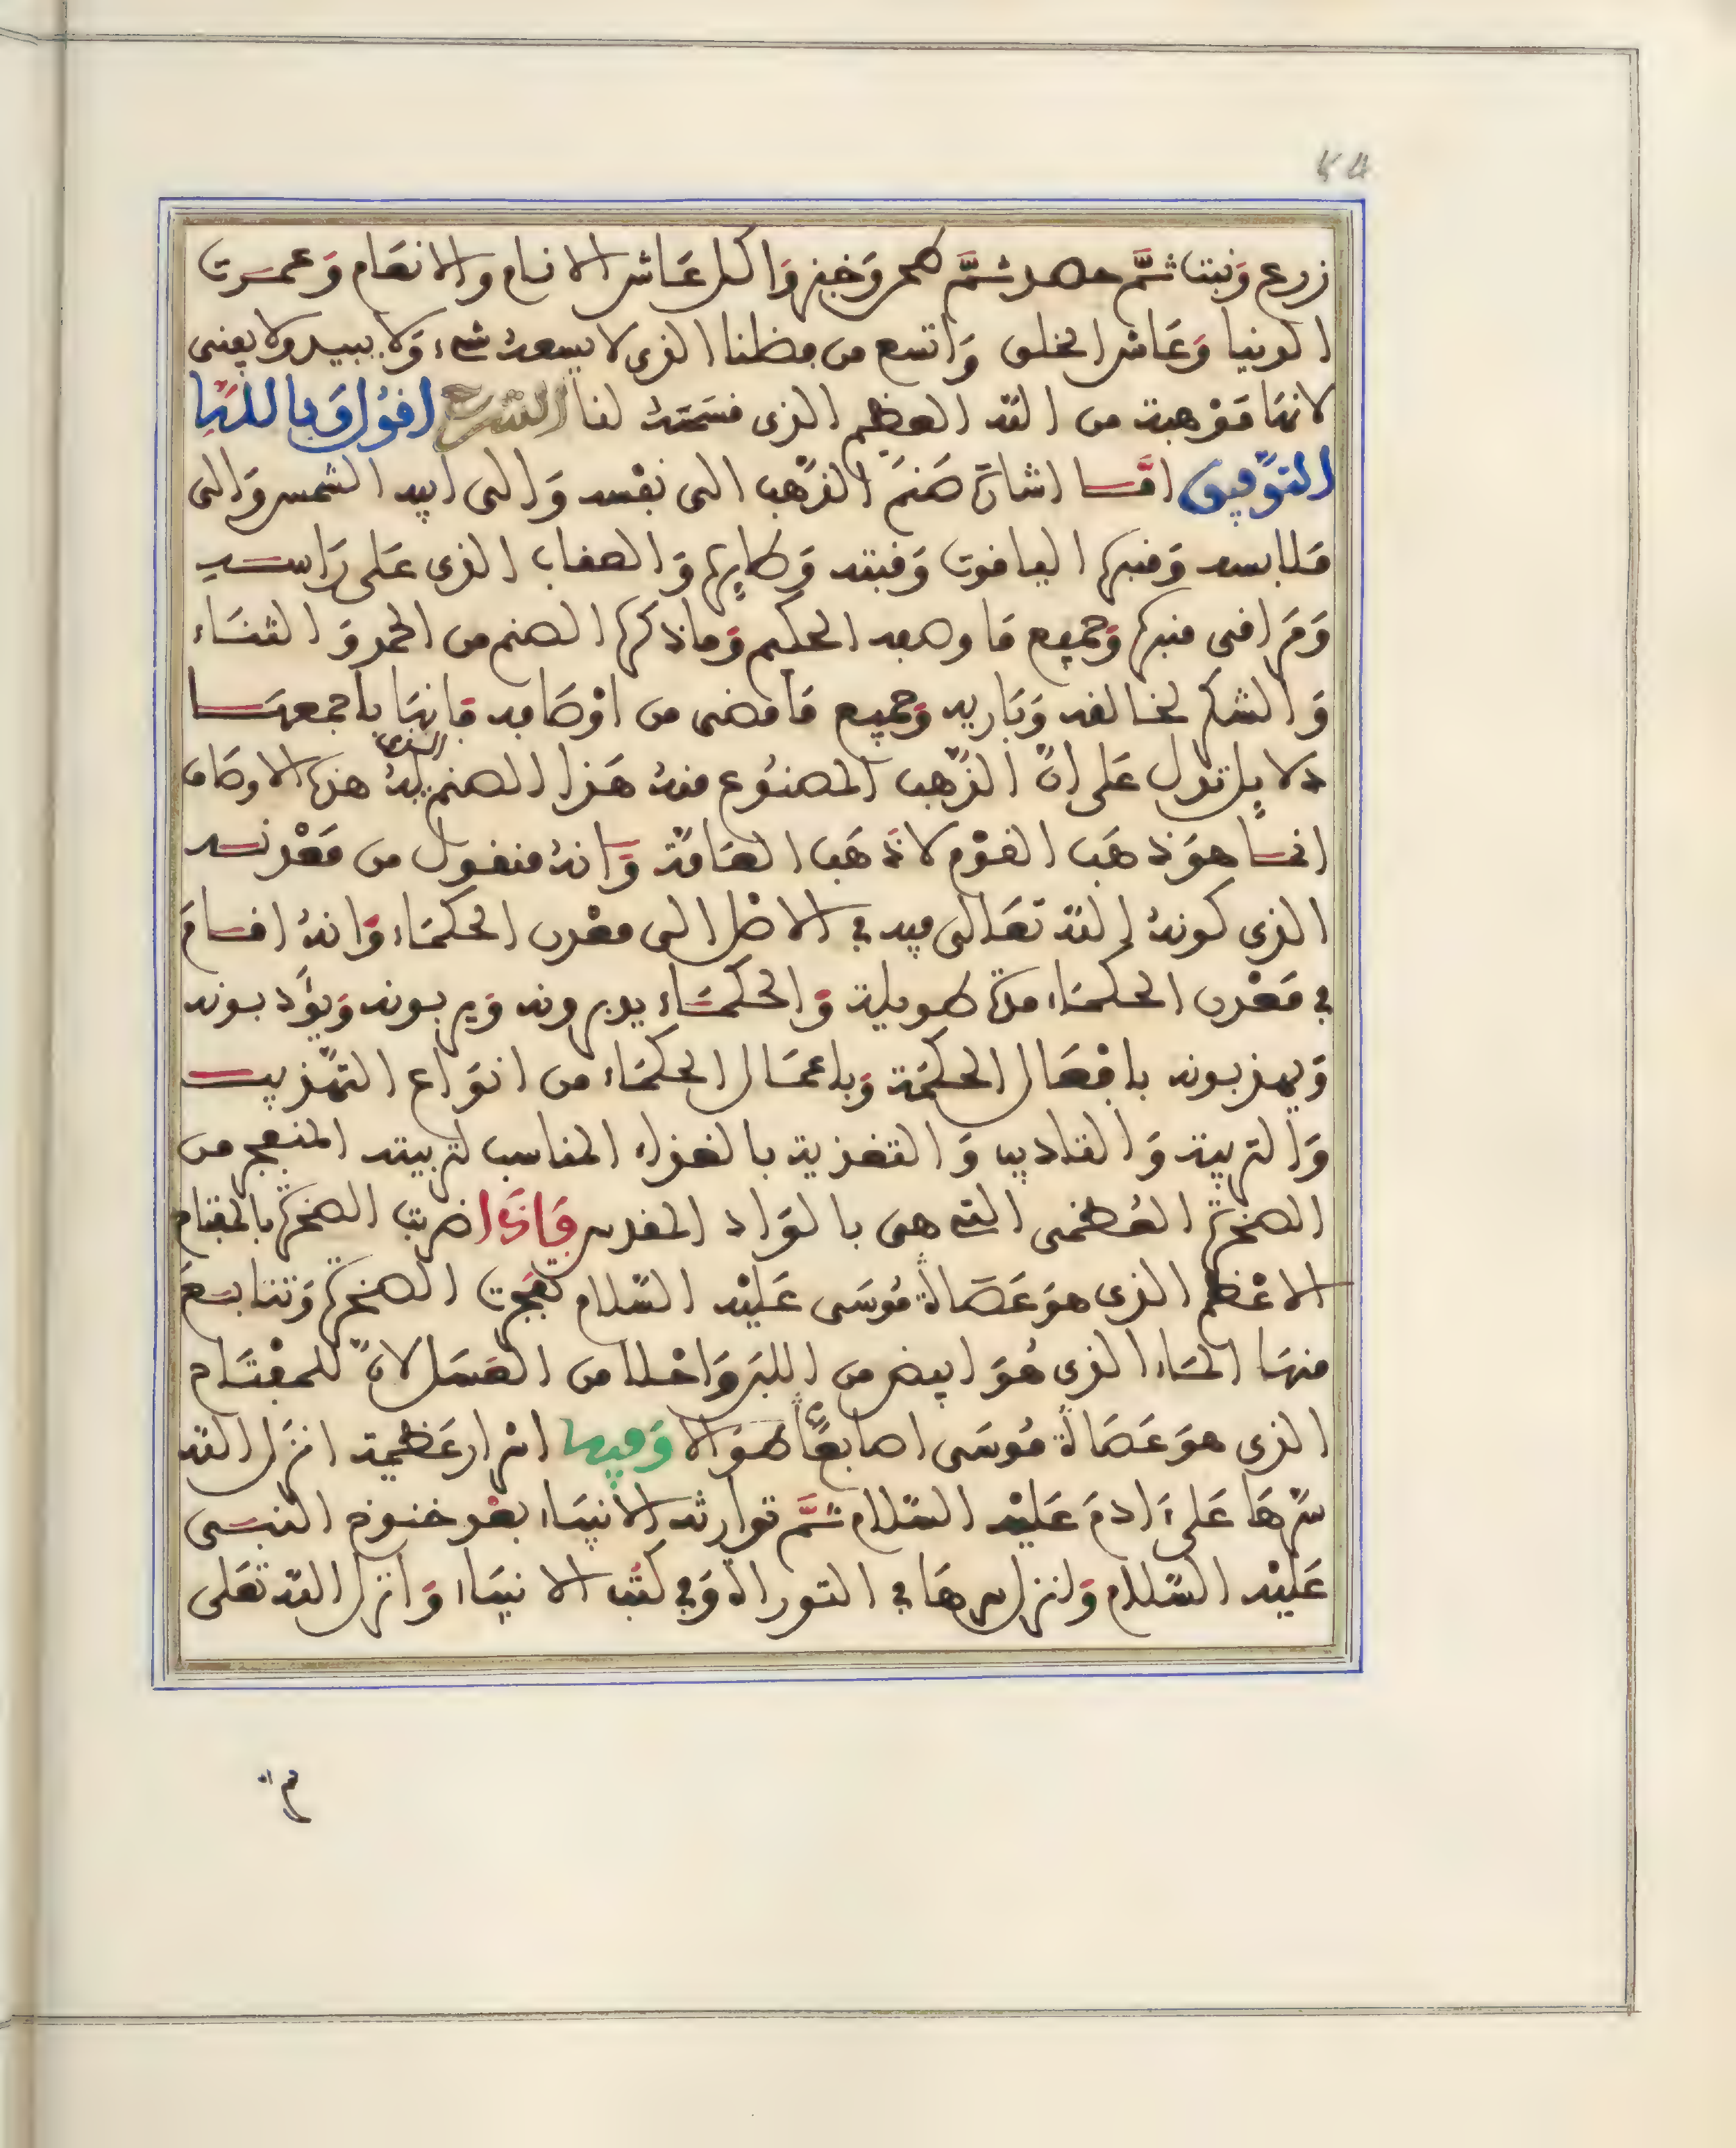 54
زرع ونبت ثم حصد ثم طحن وخبز واكل عاش الانام والانعام وعمرت
الدنيا وعاش الخلق واتسع من فضلنا الذى لا يسعه شيء ولا يبيد ولا يفنى
لانها موهبة من الله العظيم الذى قسمته لنا الشرح اقول وبالله
التوفيق اما اشارة صنم الذهب الى نفسه والى ابيه الشمس والى
ملابسه ومنبره الياقوت وقبته وطايره والعقاب الذى على راسه
ومراقى منبره وجميع ما وصفه الحكيم وما ذكره الصنم من الحمد والثناء
والشكر لخالقه وباريه وجميع ما مضى من اوصافه فانها باجمعها
دلايل تدل على ان الذهب المصنوع منه هذا الصنم الذى له هذه الاوصاف
انما هو ذهب القوم لا ذهب العامة وانه منقول من معدنه
الذى كونه الله تعالى فيه في الاصل الى معدن الحكماء وانه اقام
في معدن الحكماء مدة طويلة والحكماء يدبرونه ويربونه ويؤدبونه
ويهذبونه بافعال الحكمة وباعمال الحكماء من انواع التهذيب
والتربية والتاديب والتغذية بالغذاء المناسب لتربيته المنفجر من
الصخرة العظمى التي هى بالواد المقدس فاذا ضربت الصخرة بالمفتاح
الاعظم الذى هو عصاة موسى عليه السلام تفجرت الصخرة وتتابع
منها الماء الذى هو ابيض من اللبن واحلا من العسل لان للمفتاح
الذى هو عصاة موسى اصابعًا طوالا وفيها اسرار عظيمة انزل الله
سرها على ادم عليه السلام ثم توارثه الانبياء بعد خنوخ النبى
عليه السلام ونزل سرها في التوراة وفي كتب الانبياء وانزل الله تعلى